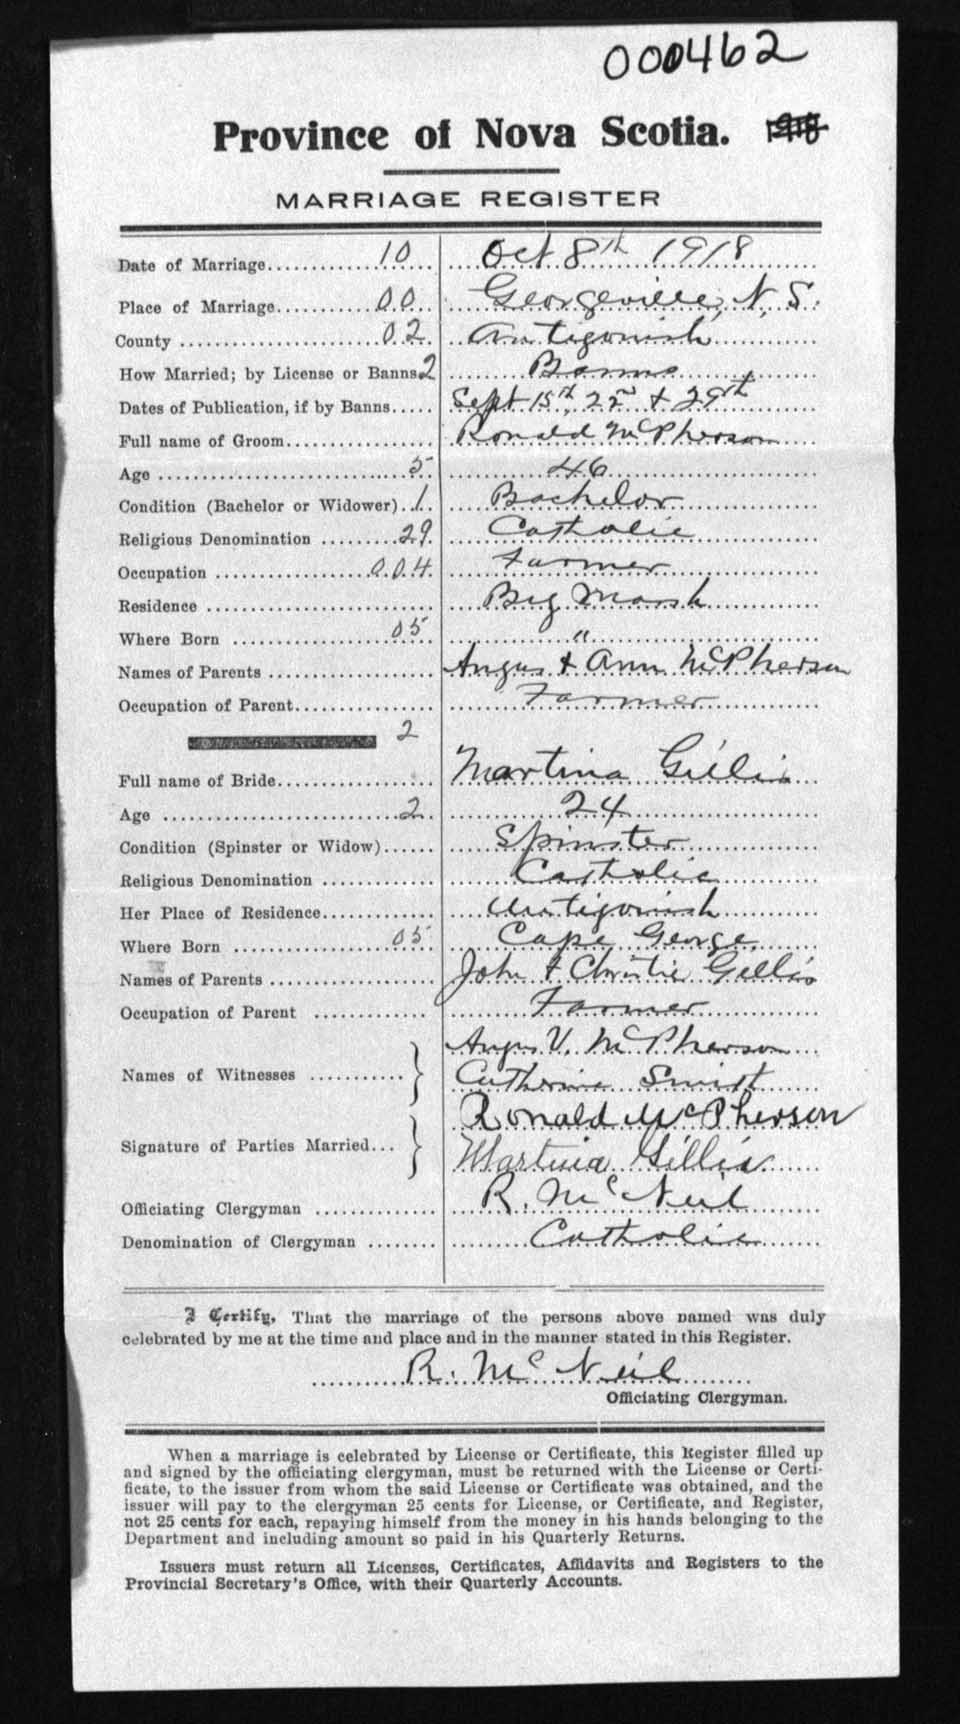 000462
Province of Nova Scotia. 1918
MARRIAGE REGISTER
Date of Marriage 10 Oct 8th 1918
Place of Marriage 00 Georgeville, N. S.
County 02 Antigonish
How Married; by License or Banns 2 Banns
Dates of Publication, if by Banns Sept 15th, 22nd & 29th
Full name of Groom Ronald McPherson
Age 5 46
Condition (Bachelor or Widower) 1 Bachelor
Religious Denomination 29 Catholic
Occupation 004 Farmer
Residence Big Marsh
Where Born 05 "
Names of Parents Angus & Ann McPherson
Occupation of Parent Farmer
2
Full name of Bride Martina Gillis
Age 2 24
Condition (Spinster or Widow) Spinster
Religious Denomination Catholic
Her Place of Residence Antigonish
Where Born 05 Cape George
Names of Parents John & Christie Gillis
Occupation of Parent Farmer
Angus V. McPherson
Names of Witnesses }
Catherine
Ronald McPherson
Signature of Parties Married }
Martina Gillis
Officiating Clergyman R. McNeil
Denomination of Clergyman Catholic
I Certify, That the marriage of the persons above named was duly
celebrated by me at the time and place and in the manner stated in this Register.
R. McNeil
Officiating Clergyman.
When a marriage is celebrated by License or Certificate, this Register filled up
and signed by the officiating clergyman, must be returned with the License or Certi-
ficate, to the issuer from whom the said License or Certificate was obtained, and the
issuer will pay to the clergyman 25 cents for License, or Certificate, and Register,
not 25 cents for each, repaying himself from the money in his hands belonging to the
Department and including amount so paid in his Quarterly Returns.
Issuers must return all Licenses, Certificates, Affidavits and Registers to the
Provincial Secretary's Office, with their Quarterly Accounts.